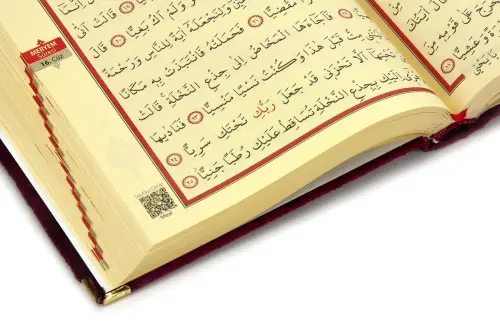 MERYEM
Sûresi
16. Cüz
قَالَتْ اَنّٰى
وَلَمْ اَكُ بَغِيًّا ﴿٢٠﴾ قَالَ
وَلِنَجْعَلَهُٓ اٰيَةً لِلنَّاسِ وَرَحْمَةً
مَقْضِيًّا ﴿٢١﴾ فَحَمَلَتْهُ فَانْتَبَذَتْ بِه۪ مَكَانًا
﴿٢٢﴾ فَاَجَٓاءَهَا الْمَخَاضُ اِلٰى جِذْعِ النَّخْلَةِۚ قَالَتْ
مِتُّ قَبْلَ هٰذَا وَكُنْتُ نَسْيًا مَنْسِيًّا ﴿٢٣﴾ فَنَادٰيهَا
تَحْتِهَٓا اَلَّا تَحْزَن۪ي قَدْ جَعَلَ رَبُّكِ تَحْتَكِ سَرِيًّا ﴿٢٤﴾
اِلَيْكِ بِجِذْعِ النَّخْلَةِ تُسَاقِطْ عَلَيْكِ رُطَبًا جَنِيًّا ﴿٢٥﴾
Meal
عَلٰى قَوْمِه۪ مِنَ
وَعَشِيًّا ﴿١١﴾